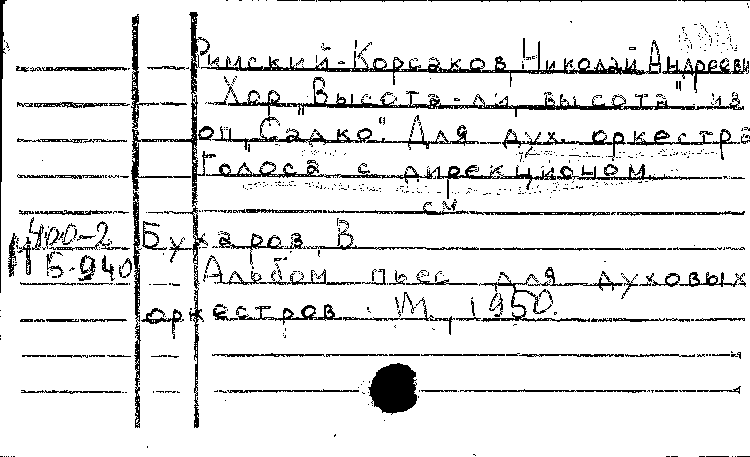 Римский-Корсаков, Николай Андрееви
Хор "Высота-ли, высота" из
оп. "Садко". Для дух. оркестра
Голоса с дирекционом
см
М 400-2 Бухаров, В
Б-940 Альбом пьес для духовых
оркестров. М., 1950.